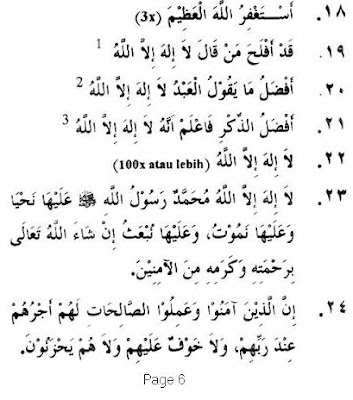 ١٨. أَسْـتَغْفِرُ اللَّهَ الْعَظِيْمَ (3x)
١٩. قَدْ أَفْلَحَ مَنْ قَالَ لَا إِلهَ إِلاَّ اللَّهُ 1
٢٠. أَفْضَلُ مَا يَقُوْلُ الْعَبْدُ لَا إِلهَ إِلاَّ اللَّهُ 2
٢١. أَفْضَلُ الذِّكْرِ فَاعْلَمْ أَنَّهُ لَا إِلهَ إِلاَّ اللَّهُ 3
٢٢. لَا إِلهَ إِلاَّ اللَّهُ (100x atau lebih)
٢٣. لَا إِلهَ إِلاَّ اللَّهُ مُحَمَّدٌ رَسُوْلُ اللَّهِ ﷺ عَلَيْهَا نَحْيَا
وَعَلَيْهَا نَمُوْتُ، وَعَلَيْهَا نُبْعَثُ إِنْ شَاءَ اللَّهُ تَعَالَى
بِرَحْمَتِهِ وَكَرَمِهِ مِنَ الآمِنِيْنَ.
٢٤. إِنَّ الَّذِيْنَ آمَنُوْا وَعَمِلُوا الصَّالِحَاتِ لَهُمْ أَجْرُهُمْ
عِنْدَ رَبِّهِمْ، وَلَا خَوْفٌ عَلَيْهِمْ وَلَا هُمْ يَحْزَنُوْنَ.
Page 6